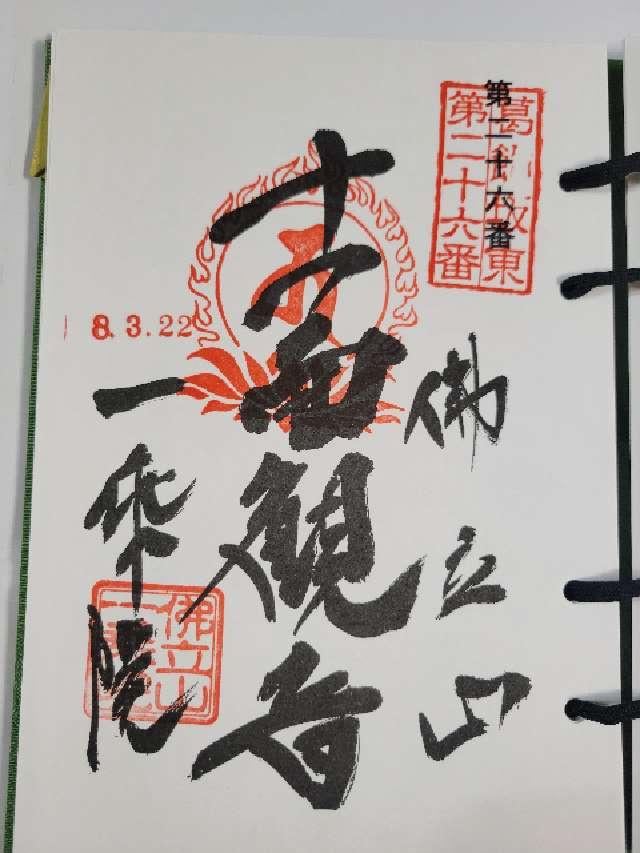 第二十六番
葛飾坂東
第二十六番
佛立山
十一面観音
8.3.22
一乗院
佛立山